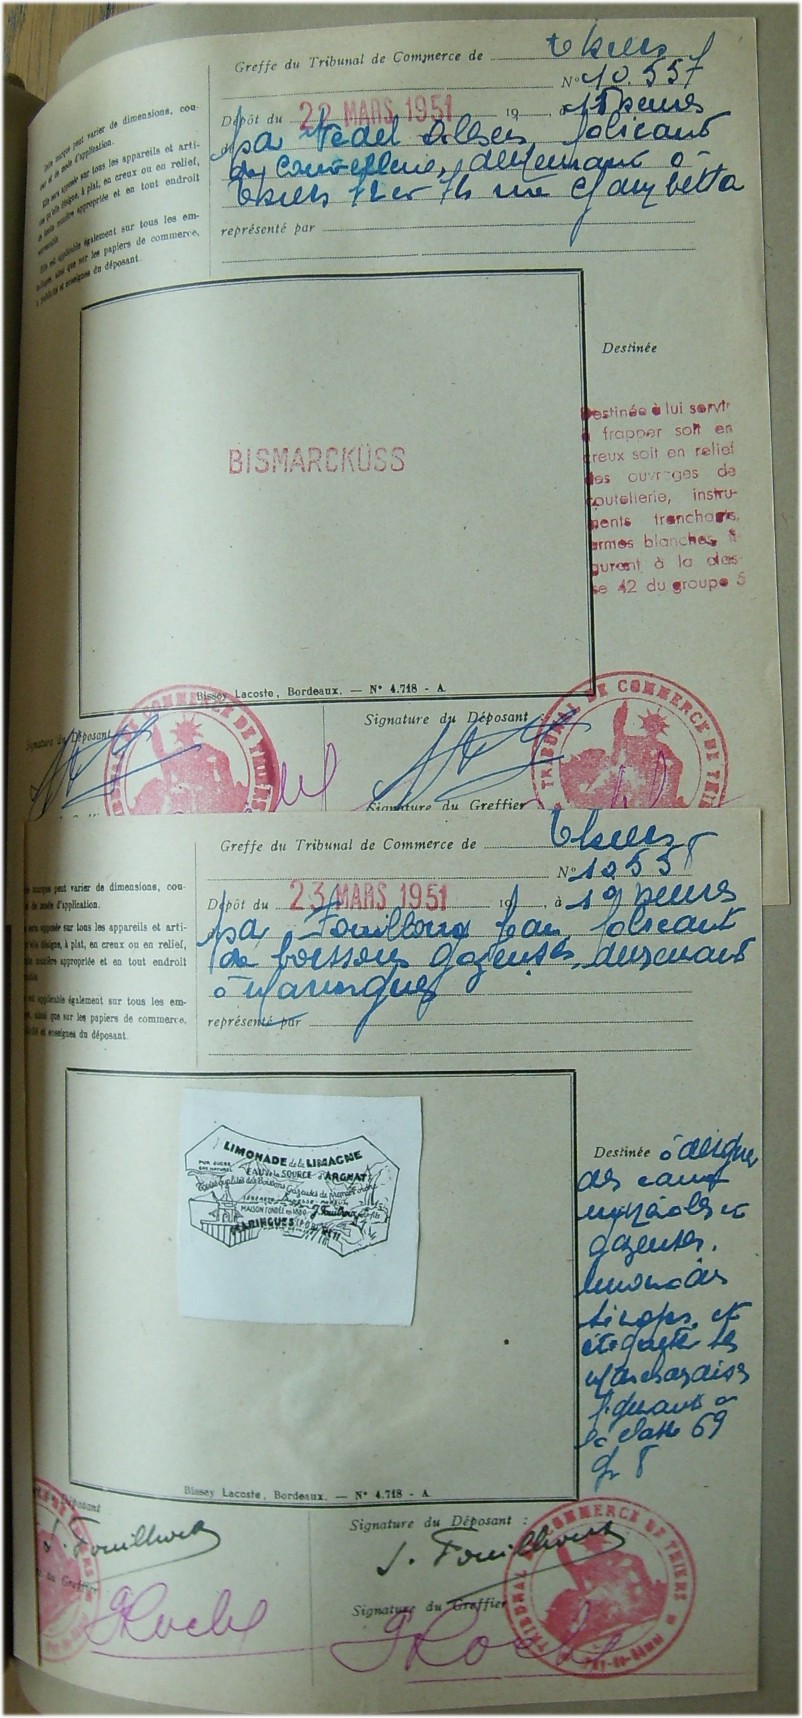 Greffe du Tribunal de Commerce de Thiers
N° 10.557
Dépôt du 22 MARS 1951 19 , à 15 heures
par Fédel fabricant
de Coutellerie, demeurant à
Thiers 72 et 74 rue Gambetta
représenté par
marque peut varier de dimensions, cou-
et de mode d'application.
Elle sera apposée sur tous les appareils et arti-
qu'elle désigne, à plat, en creux ou en relief,
de toute manière appropriée et en tout endroit
convenable.
Elle est applicable également sur tous les em-
ballages, ainsi que sur les papiers de commerce,
publicité et enseignes du déposant.
BISMARCKÜSS
Destinée
Destinée à lui servir
à frapper soit en
creux soit en relief
des ouvrages de
coutellerie, instru-
ments tranchants,
armes blanches, fi-
gurant à la clas-
se 42 du groupe 5
Bissey Lacoste, Bordeaux. — N° 4.718 - A.
Signature du Déposant
Signature du Déposant :
TRIBUNAL DE COMMERCE DE THIERS
Signature du Greffier
Greffe du Tribunal de Commerce de Thiers
N° 10558
Dépôt du 23 MARS 1951 19 , à 19 heures
par Fouilhoux Jean, fabricant
de boissons gazeuses, demeurant
à Maringues
représenté par
marque peut varier de dimensions, cou-
de mode d'application.
sera apposée sur tous les appareils et arti-
qu'elle désigne, à plat, en creux ou en relief,
toute manière appropriée et en tout endroit
est applicable également sur tous les em-
ainsi que sur les papiers de commerce,
et enseignes du déposant.
LIMONADE de la LIMAGNE
PUR SUCRE
EAU de la SOURCE d'ARGNAT
Boissons Gazeuses de premier ordre
MAISON FONDÉE en
J. Fouilhoux
MARINGUES (P.-DE-D.)
Destinée à désigner
des eaux
minérales et
gazeuses,
limonades
sirops, et
étiqueter les
marchandises
figurant à
la classe 69
gr 8
Bissey Lacoste, Bordeaux. — N° 4.718 - A.
Déposant
J. Fouilhoux
du Greffier
GRoche
Signature du Déposant :
J. Fouilhoux
Signature du Greffier
GRoche
TRIBUNAL DE COMMERCE DE THIERS
PUY-DE-DÔME